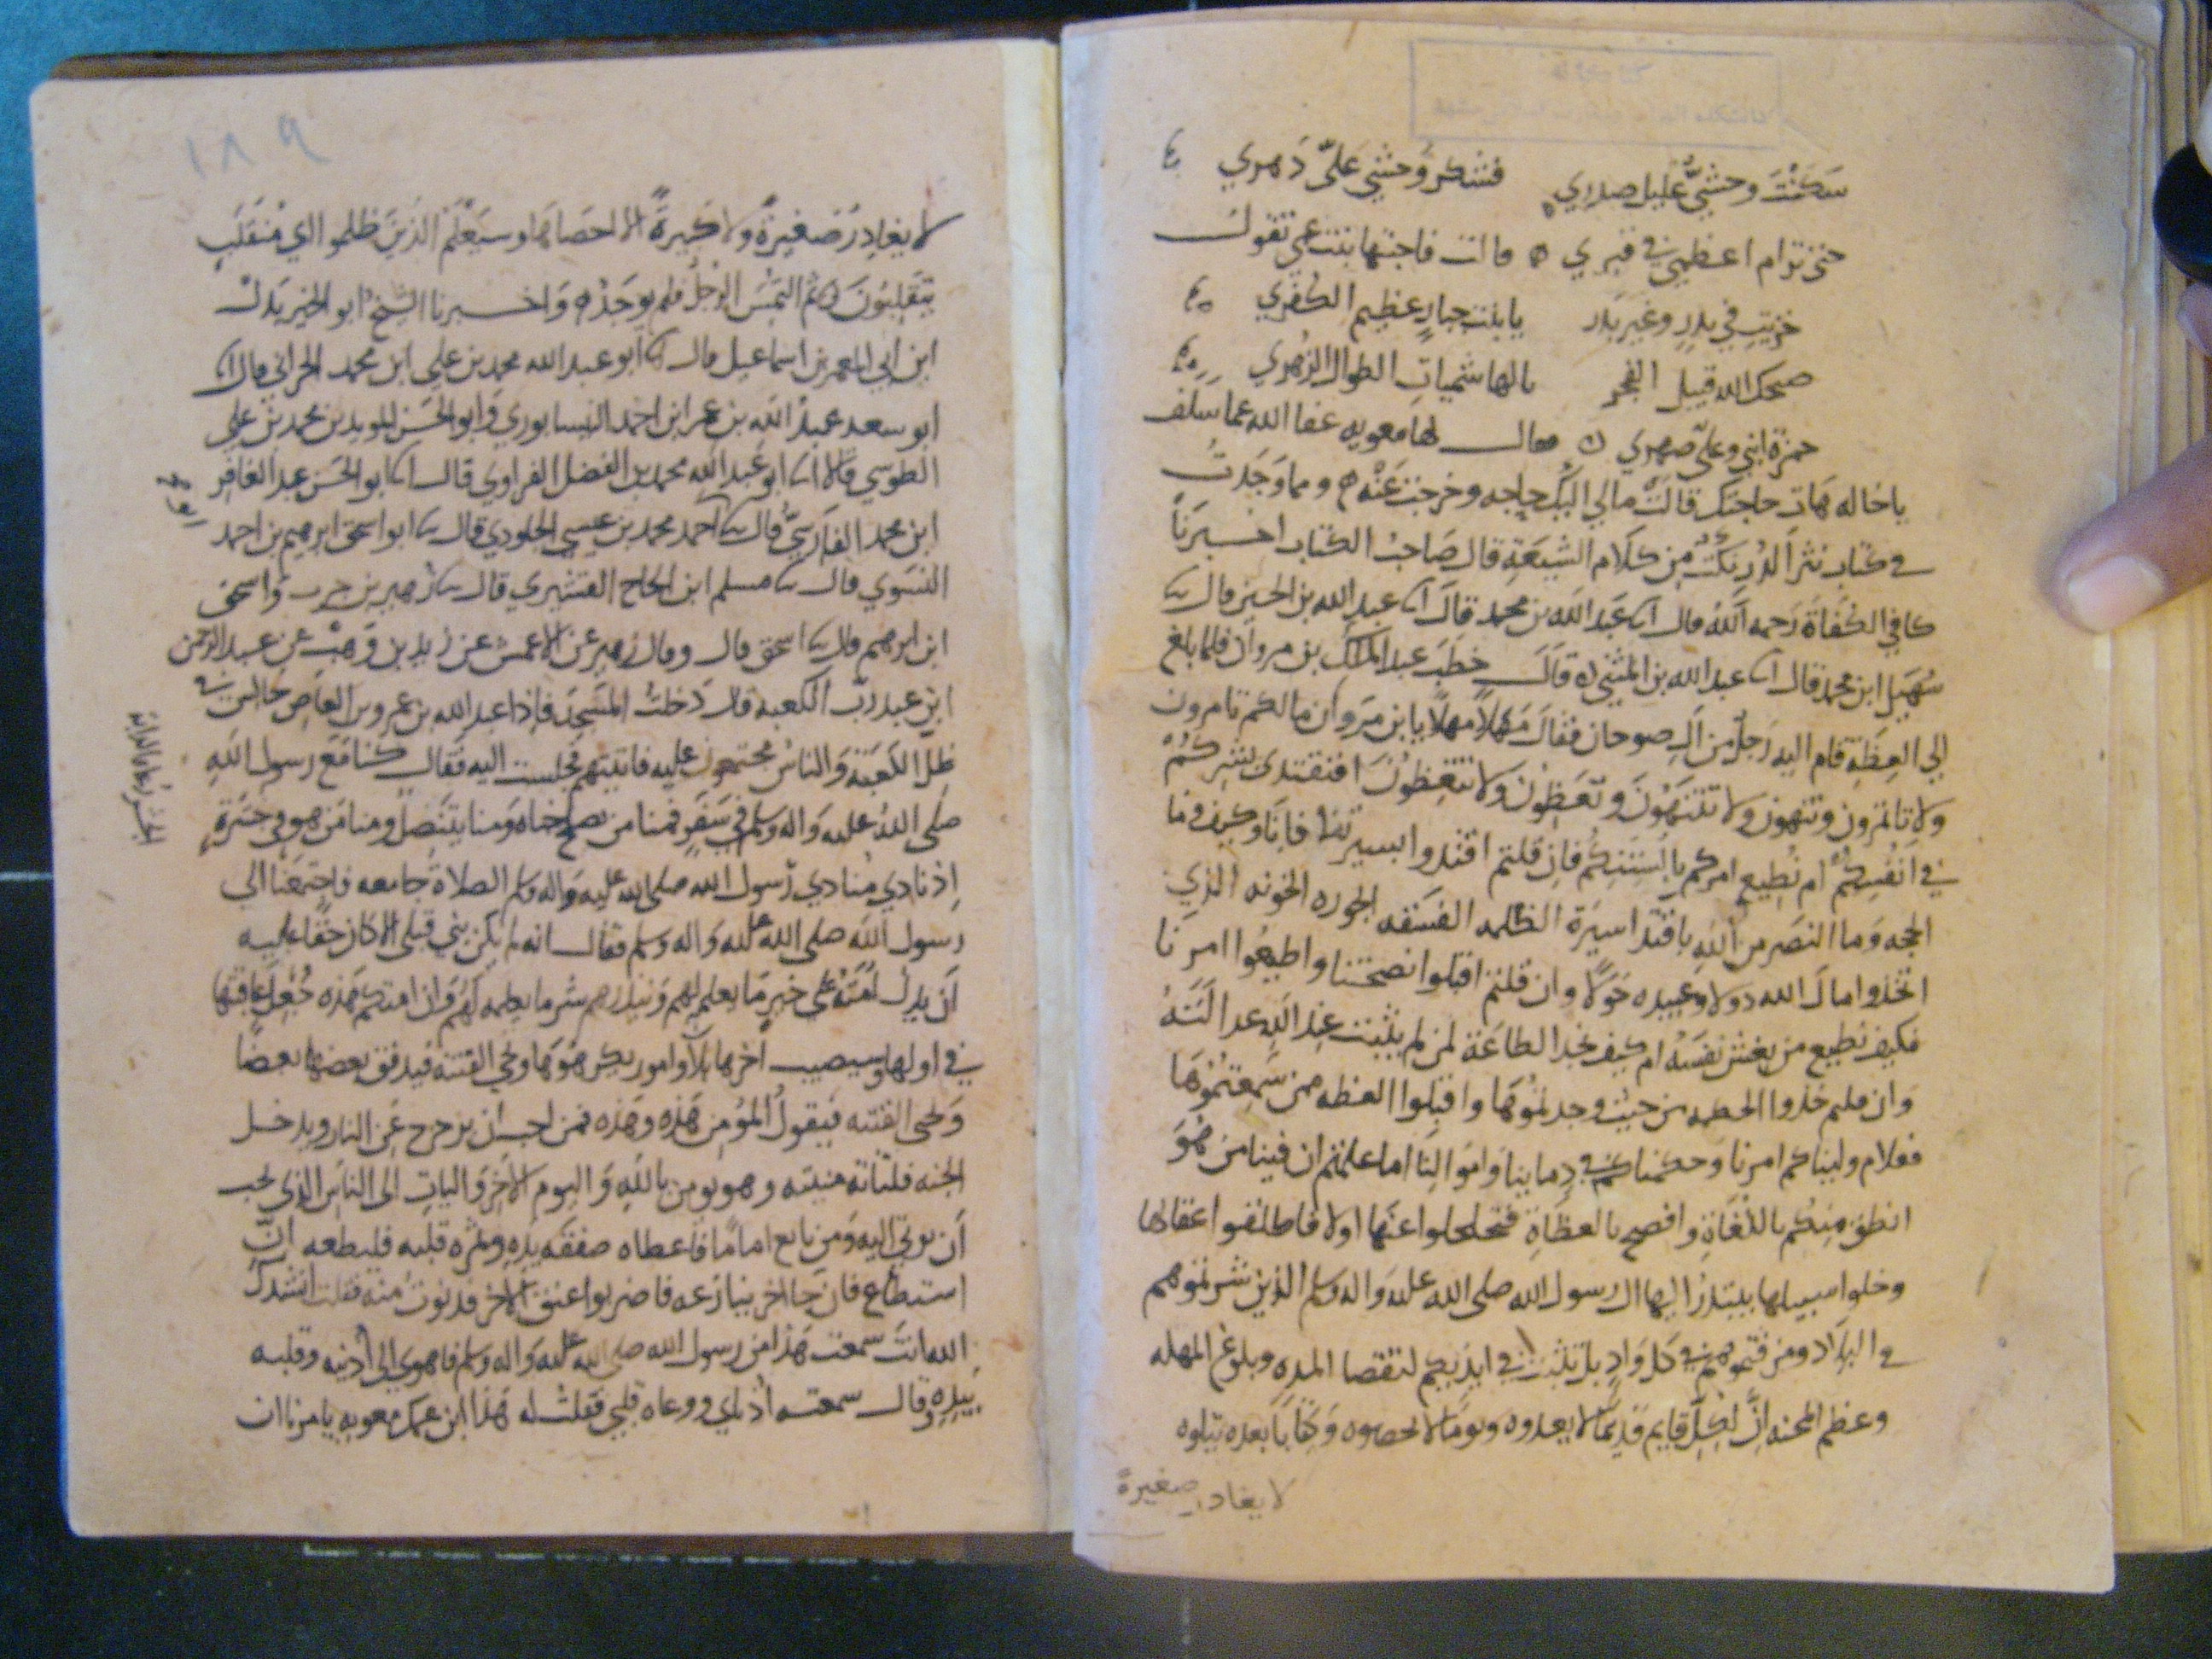 سَكَنْتَ وحشيُّ غليل صدري فشكر وحشي عَليّ دَهري
حتى ترم اعظمي في قبري فاجابتها بنت عمي تقول
خزيتِ في بدرٍ وغير بدر يا بنت جبارٍ عظيم الكفري
صبحك الله قبيل الفجر بالهاشميات الطوال الزهري
حمزة ابني وعليّ صهري فقال لها معويه عفا الله عما سلف
يا خاله هَات حاجتك قالَتْ مالي اليك حاجه وخرجت عَنْه ومما وَجَدتُ
في كتاب نثر الدُر نكتٌ من كلَام الشيعَةِ قال صَاحبُ الكتاب اخبرَنا
كافي الكفَاة رَحمه الله قال انا عَبد الله بن محمد قالَ انا عبد الله بن الحسين قال نا
سُهَيل ابن محمد قال انا عبد الله بن المثنى قالَ خطَبَ عبد الملك بن مروان فلما بلغ
الي العِظَه قام اليه رَجلٌ من آل صوحان فقالَ مَهلاً مهلاً يا بن مَروان ما لكم تامرون
ولا تاتمرون وتنهون ولا تنتهَونَ وتَعظونَ ولا تتعِظونَ افنقتدى بسيركم
في انفسِكُم ام نُطيع امركم بالسنتكم فان قلتم اقتدوا بسيرتنا فانا وكيف وما
الحجه وَما النصَر من الله باقتدا سيرَة الظلمه الفسَقه الجوره الخونه الذين
اتخذوا مالَ الله دولا وعبيده خَولًا وان قلتم اقبلوا نصحتنا واطيعُوا امرَنا
فكيف نطيع من يغش نفسَهُ ام كيف تجد الطاعَة لمن لم تثبت عند الله عدالَتهُ
وَان قلتم خذوا الحكمه من حيث وجدتموُها واقبلوا العظه ممن سَمِعتمُوهَا
فعلام وليناكم امرنا وَحكمناكم في دِماينا واموالنَا اما علمتم ان فينا من هُوَ
انطق منكم باللُغَاةِ وافصح بالعظَاةِ فتحلحلوا عنها اولا فاطلقوا عقالها
وخلوا سبيلها يبتدرُ اليها ال رسول الله صلى الله عليه واله وسلم الذين شردتموهم
في البلَاد ومزقتموهم في كل وَادٍ بل تثبت في ايديكم لتقضا المده وبلوغ المهله
وعظم المحنه انَّ لكلِّ قايم قدرًا لا يعدوه ويومًا لا يخطوه وَكتَابًا بعده يتلوه
لا يغادر صغيرةً
١٨٩
لا يغادِرُ صَغيرةً ولا كَبيرةً الا احصَاهَا وسَيَعْلَم الذينَ ظلموا اي مُنقَلَبٍ
يَنقلِبُونَ ثم التمِسَ الرجُلُ فلم يوجَدْ وَاخبرنا الشيخ ابو الخير بَدَل
ابن ابي المعمر بن اسماعيل قال انا ابو عبد الله محمد بن علي ابن محمد الحراني قال انا
ابو سعد عبدُ الله بن عمر ابن احمد النيسابوري وَابو الحَسَن المويد بن محمد بن علي
الطوسي قالا انا ابو عبد الله محمد بن الفضل الفراوي قال انا ابو الحسَن عبد الغافِر
ابن محمد الفارسيّ قال انا احمد محمد بن عيسي الجلودي قال نا ابو اسحق ابرهيم بن احمد
النسَوي قال نا مسلم ابن الحاج القشيري قال نا زهير بن حرب وَاسحق
ابن ابرهيم قال نا اسحق قال وقال زهير عن الاعمش عن زيد بن وَهبٍ عن عبد الرحمن
ابن عبد ربّ الكعبه قال دَخلتُ المسَجدَ فاذا عبد الله بن عمرو بن العَاص جَالس في
ظل الكَعبَة وَالناسُ مجتمعون عليه فاتيتهم فجلست اليه فقال كنا مَعَ رسول الله
صلى اللهُ عليه وَاله وسلم في سَفَرٍ فمنا من يصلح خباه ومنا يتنَضل ومنا من هو في جَشرَةٍ
اِذ نادي مُنادي رَسول الله صلى الله عليه وَاله وسلم الصلاةُ جَامعه فاجتمَعْنا الى
رسول الله صلى الله عليه وَاله وسلم فقال انه لم يكن نبي قبلى الا كان حَقًا عليه
اَن يدل امتهُ على خير مَا يعلمه لهم وَينذرهم شر ما يعلمه لهُم وَان امتكم هَذه جُعِلَ عَافيتها
في اولها وسيصيب اخرها بلَا وامور تنكرهُوَهَا وتجي الفتنه فيدفق بعضها بعضًا
وَتجى الفتنه فيَقولُ المؤمن هَذه وهَذه فمن احب ان يزحزح عَن النار ويدخل
الجنه فلتاته منيته وهو يومن بالله وَاليوم الاخر وَاليات الى الناس الذي يحب
اَن يوتي اليه وَمن بايع امامًا فاعطاه صَفقَه يدِهِ وثمره قلبه فليطعه انّ
استطاع فان جا اخر ينازعه فاضربوا عنق الاخر فدنوتُ منه فقلت انشدك
الله انتَ سمعت هَذا من رسول الله صلى الله عليه وَاله وسلم فاهوي الى اذنيه وقلبه
بيَدِهِ وقال سمعته اذناي ووعاه قلبي فقلت له هَذا ابن عمك معويه يامرنا ان